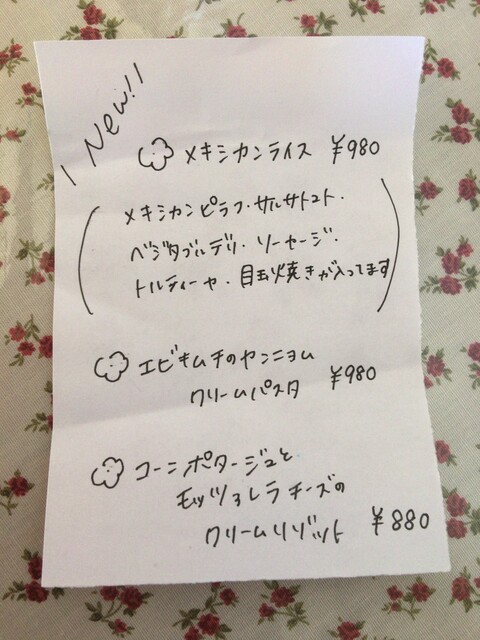 \ New!! /
メキシカンライス ¥980
(メキシカンピラフ・サルサトマト・
ベジタブルデリ・ソーセージ・
トルティーヤ・目玉焼きが入ってます)
エビキムチのヤンニョム
クリームパスタ ¥980
コーンポタージュと
モッツァレラチーズの
クリームリゾット ¥880